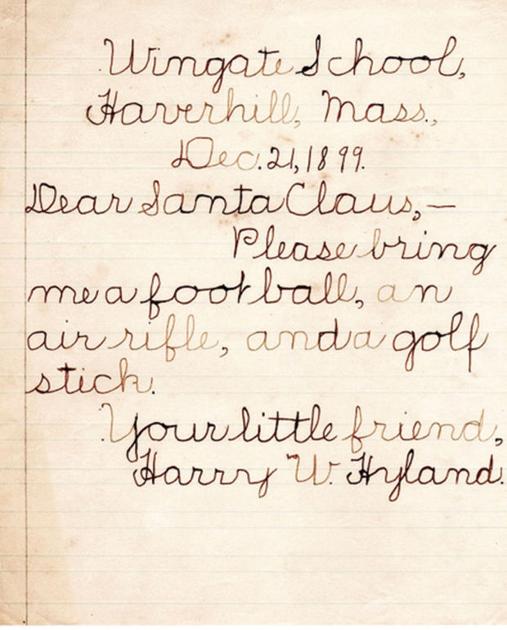 Wingate School,
Haverhill, Mass.,
Dec. 21, 1899.
Dear Santa Claus,—
Please bring
me a football, an
air rifle, and a golf
stick.
Your little friend,
Harry W. Hyland.